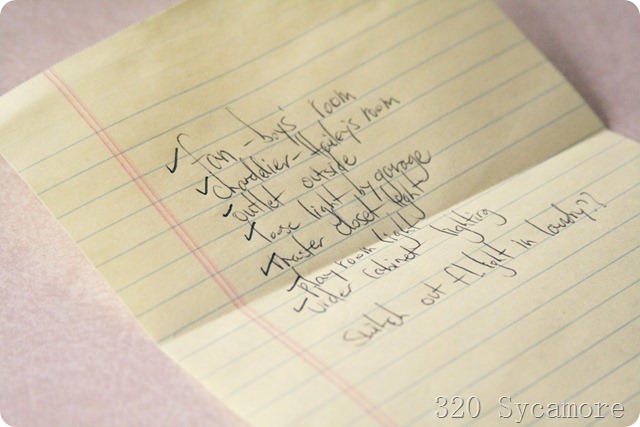 ✓ fan - boys' room
✓ chandelier - Hailey's room
✓ outlet outside
✓ loose light by garage
✓ Master closet light
✓ Playroom light
✓ under cabinet lighting
Switch out fl. light in laundry??
320 Sycamore